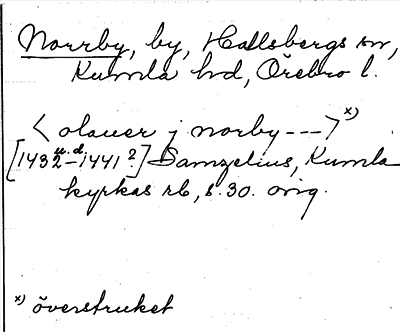 Norrby, by, Hallsbergs sn,
Kumla hd, Örebro l.
< olauer j norby --- > x)
[1432 u.d. – 1441 ?] Samzelius, Kumla
kyrkas rb, s. 30. orig.
x) överstruket